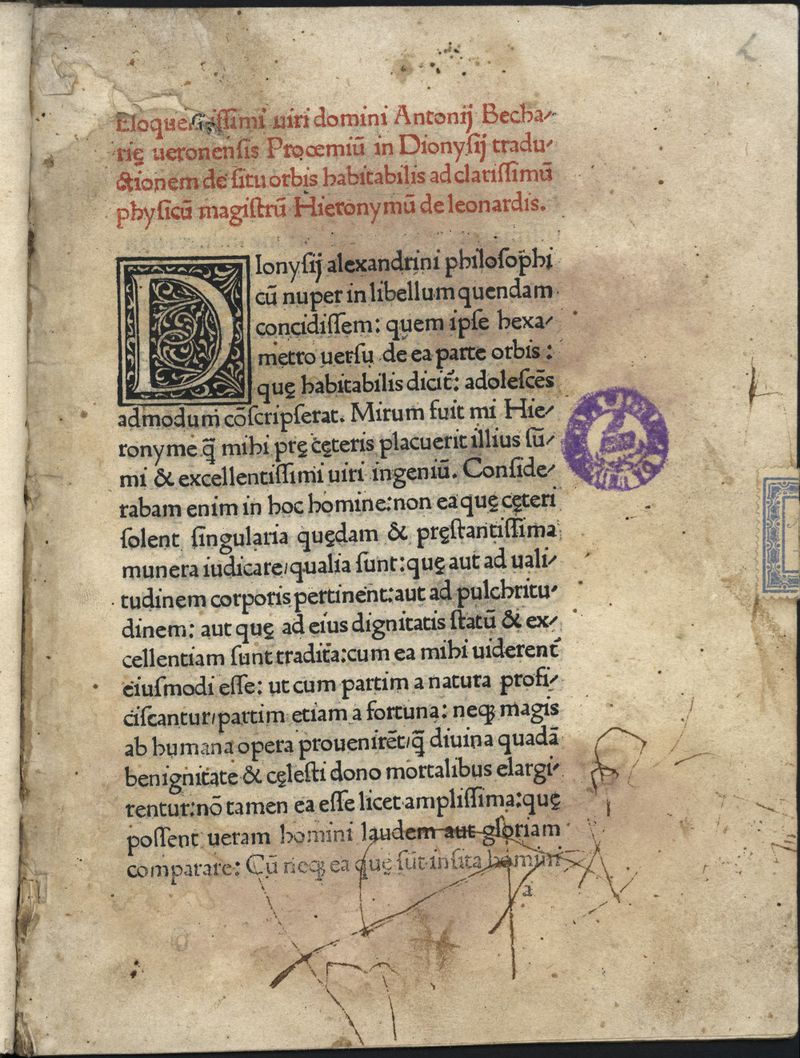 Eloquentissimi uiri domini Antonij Becha⸗
rię ueronensis Proęmiū in Dionysij tradu⸗
ctionem de situ orbis habitabilis ad clarissimū
physicū magistrū Hieronymū de leonardis.
DIonysij alexandrini philosophi
cū nuper in libellum quendam
concidissem: quem ipse hexa⸗
metro uersu de ea parte orbis:
quę habitabilis dicit᷑: adolescēs
admodum cōscripserat. Mirum fuit mi Hie⸗
ronyme q̄ mihi prę cęteris placuerit illius sū⸗
mi & excellentissimi uiri ingeniū. Conside⸗
rabam enim in hoc homine: non ea quę cęteri
solent singularia quędam & pręstantissima
munera iudicare, qualia sunt: quę aut ad uali⸗
tudinem corporis pertinent: aut ad pulchritu⸗
dinem: aut quę ad eius dignitatis statū & ex⸗
cellentiam sunt tradita: cum ea mihi uiderent᷑
eiusmodi esse: ut cum partim a natura profi⸗
ciscantur, partim etiam a fortuna: neq; magis
ab humana opera prouenirēt, q̄ diuina quadā
benignitate & cęlesti dono mortalibus elargi⸗
rentur: nō tamen ea esse licet amplissima: quę
possent ueram homini laudem aut gloriam
comparare: Cū neq; ea quę sūt insita homini
a